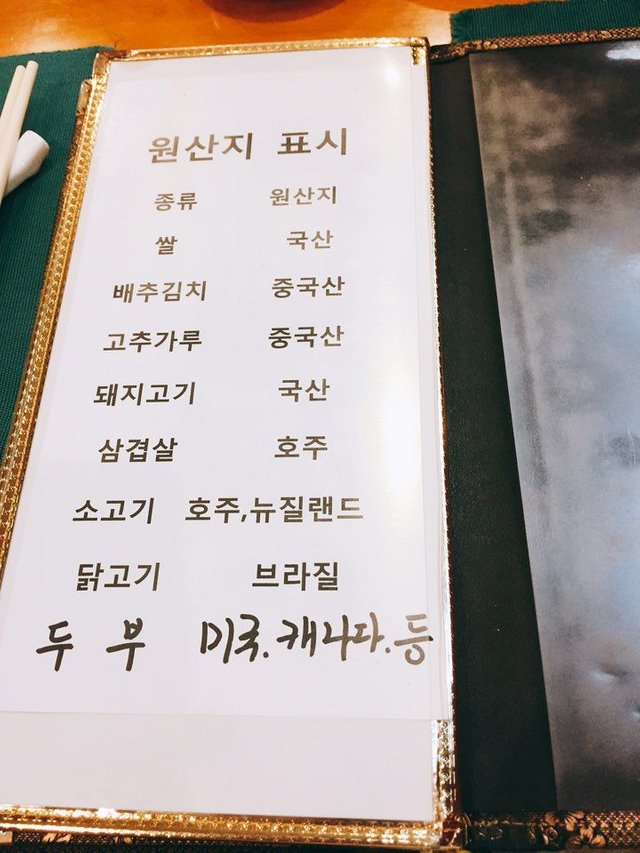 원산지 표시
종류 원산지
쌀 국산
배추김치 중국산
고추가루 중국산
돼지고기 국산
삼겹살 호주
소고기 호주,뉴질랜드
닭고기 브라질
두부 미국.캐나다.등